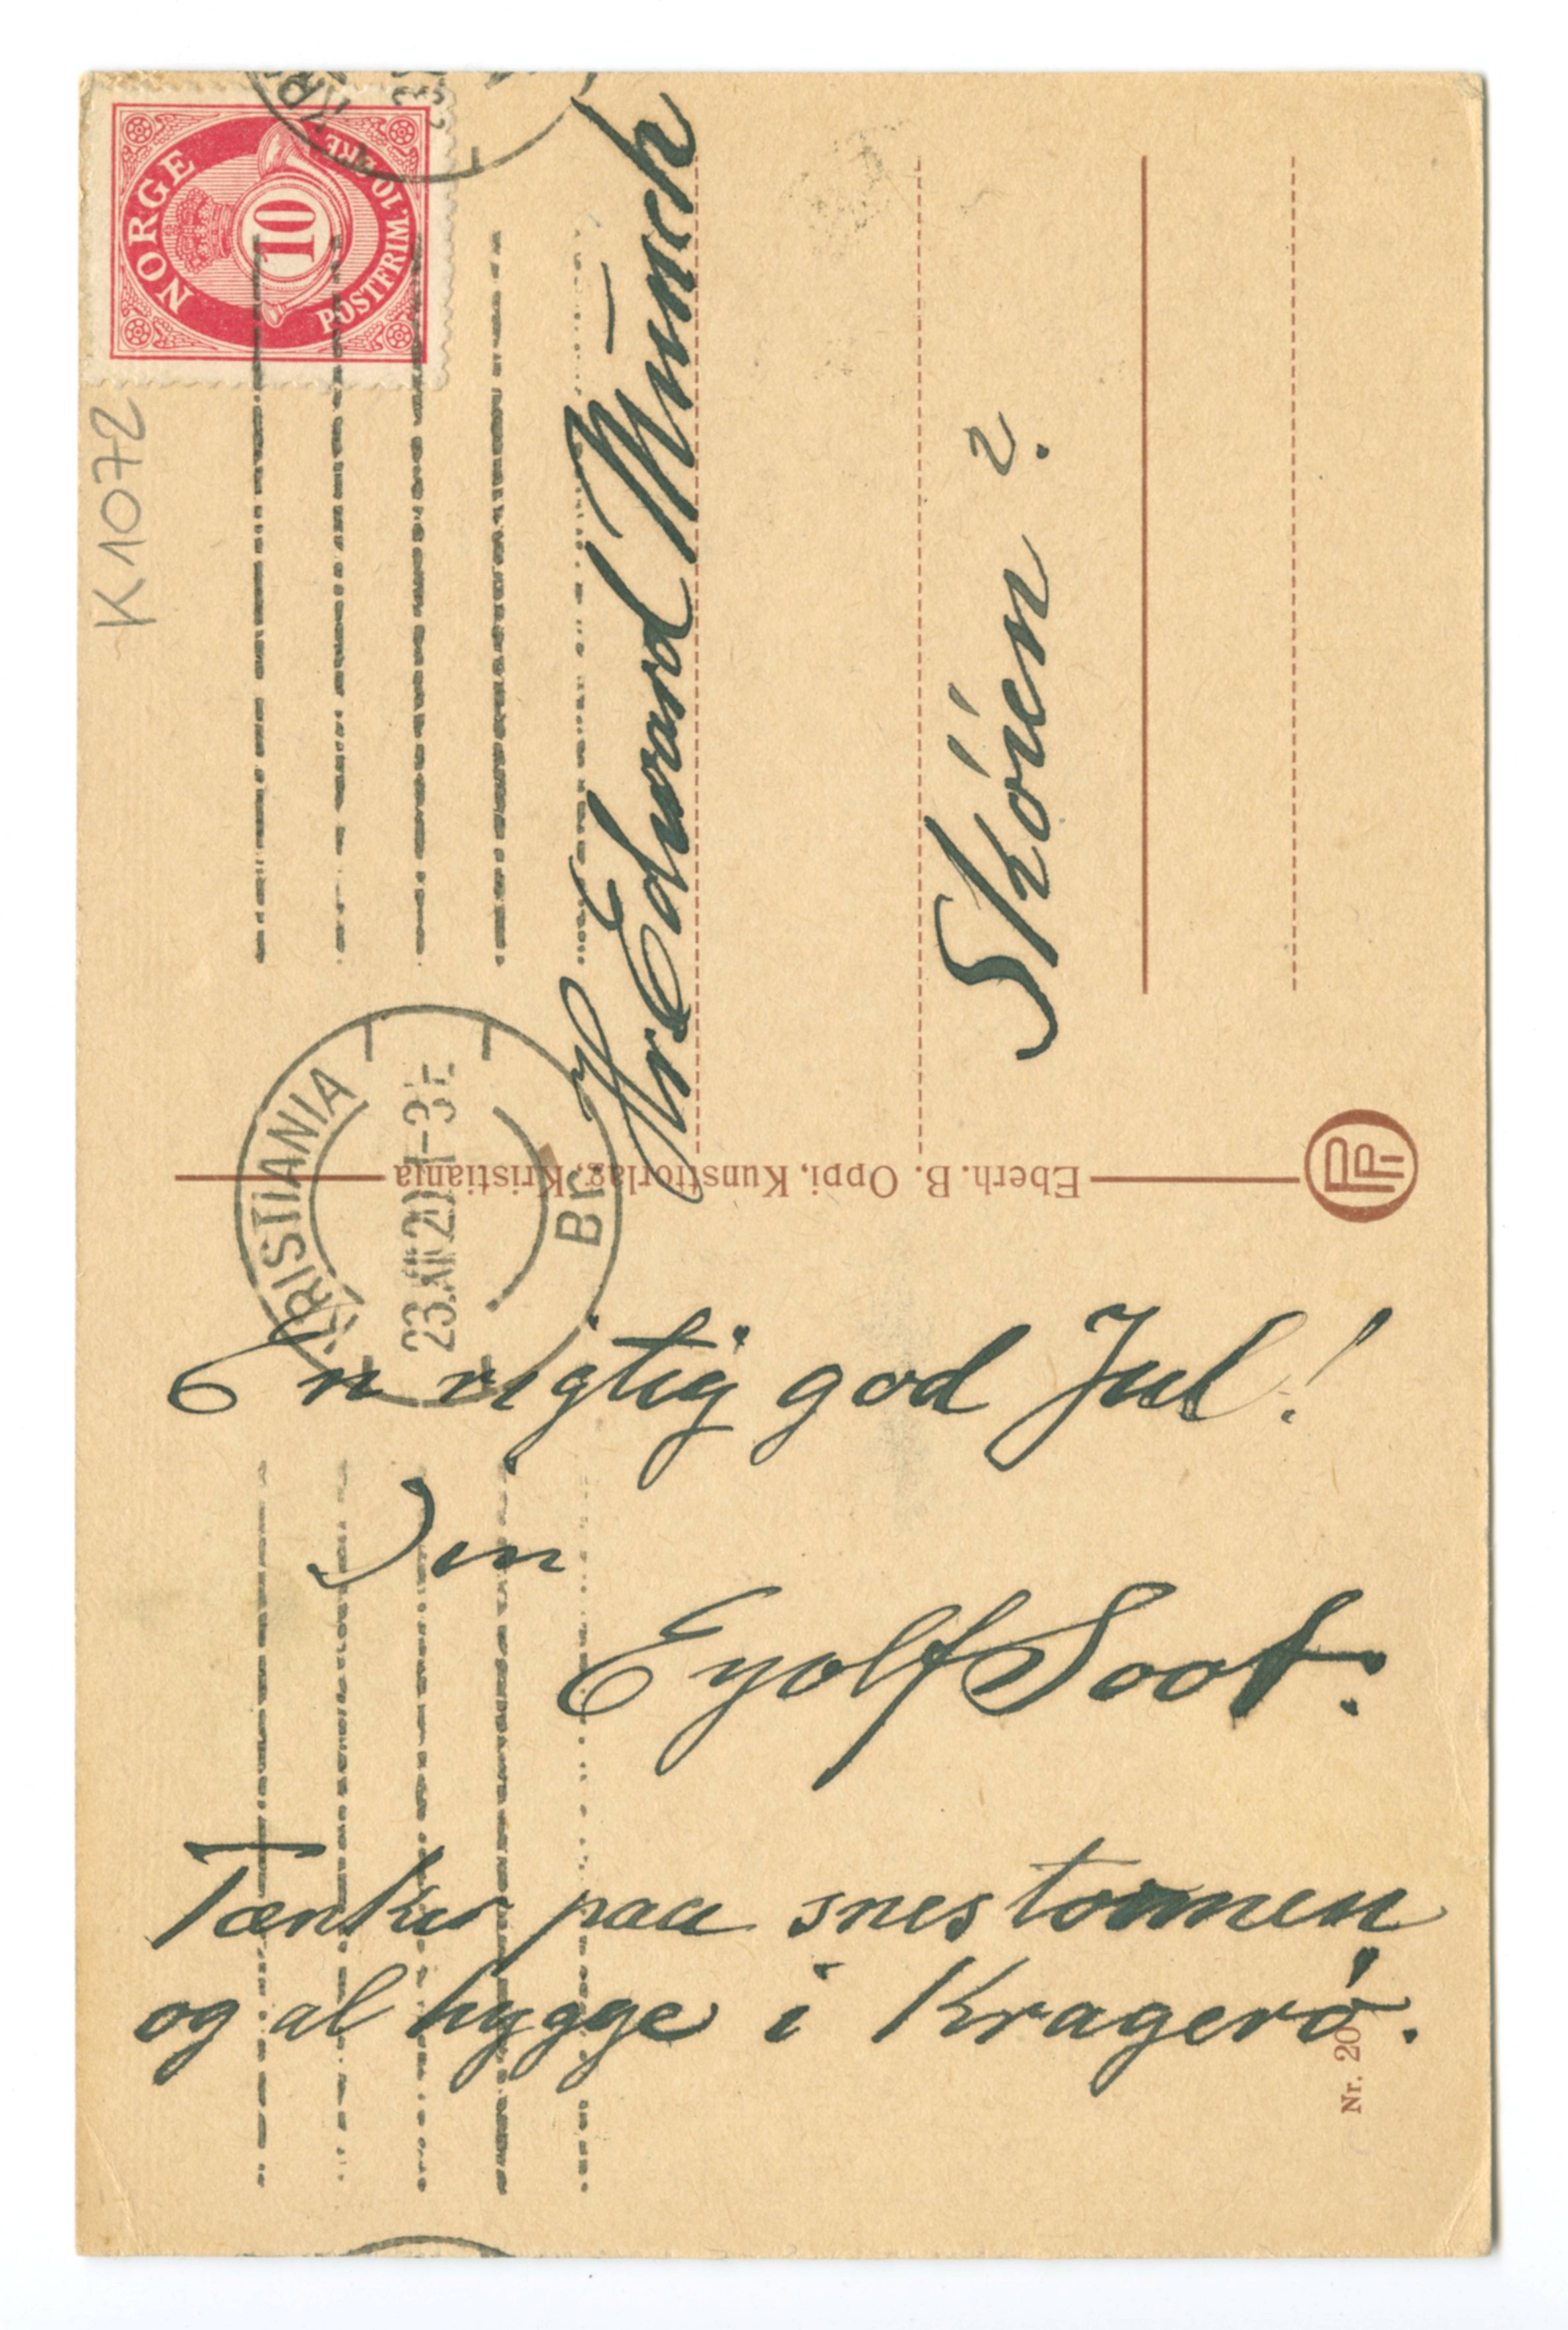 NORGE
10
POSTFRIM. 10 ØRE
K 1072
KRISTIANIA
23.XII.20 1-3 E
Br.
Hr Edvard Münch
Skóien
2.
Eberh. B. Oppi, Kunstforlag, Kristiania
En rigtig god Jul!
Din
Eyolf Soot.
Tænker paa snestormen
og al hygge i Kragerø.
Nr. 20